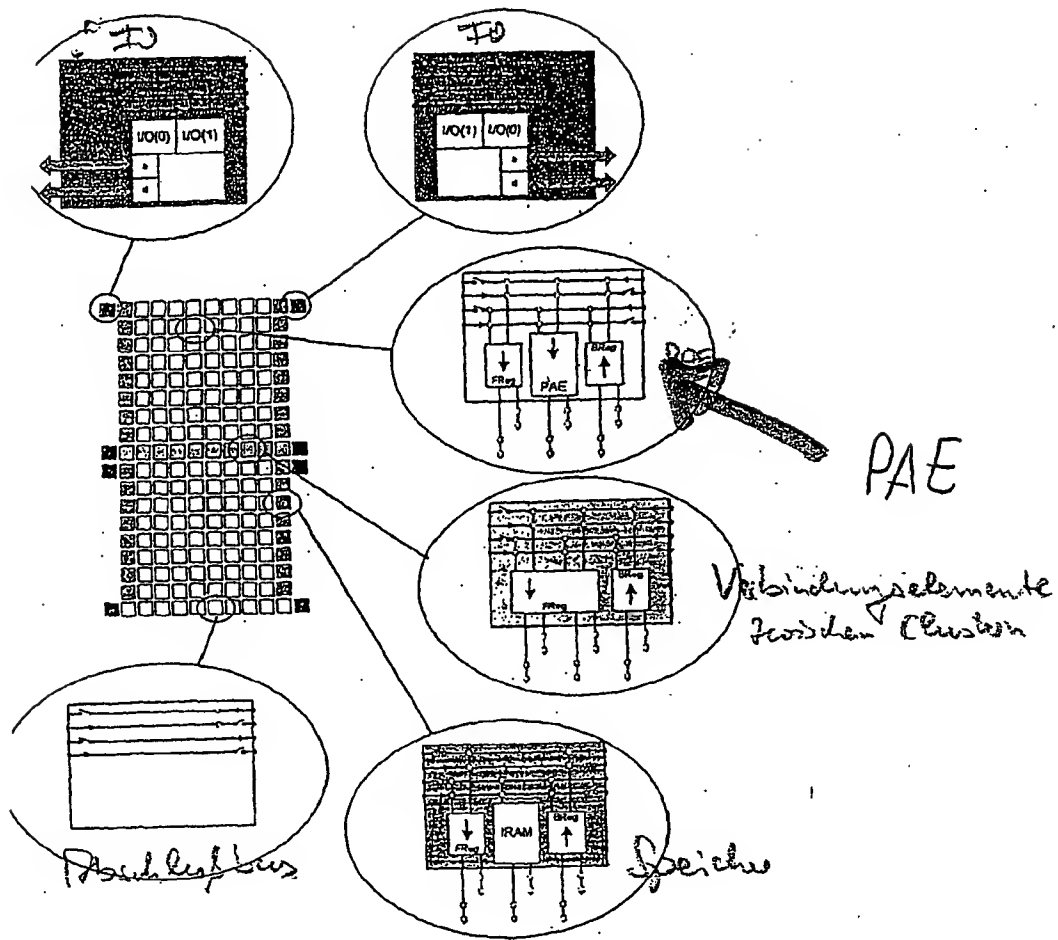 IO
IO
I/O(0) I/O(1)
I/O(1) I/O(0)
FReg
PAE
BReg
PAE
FReg
BReg
Verbindungselemente
zwischen Clustern
FReg
IRAM
BReg
Speicher
Abschlußbus